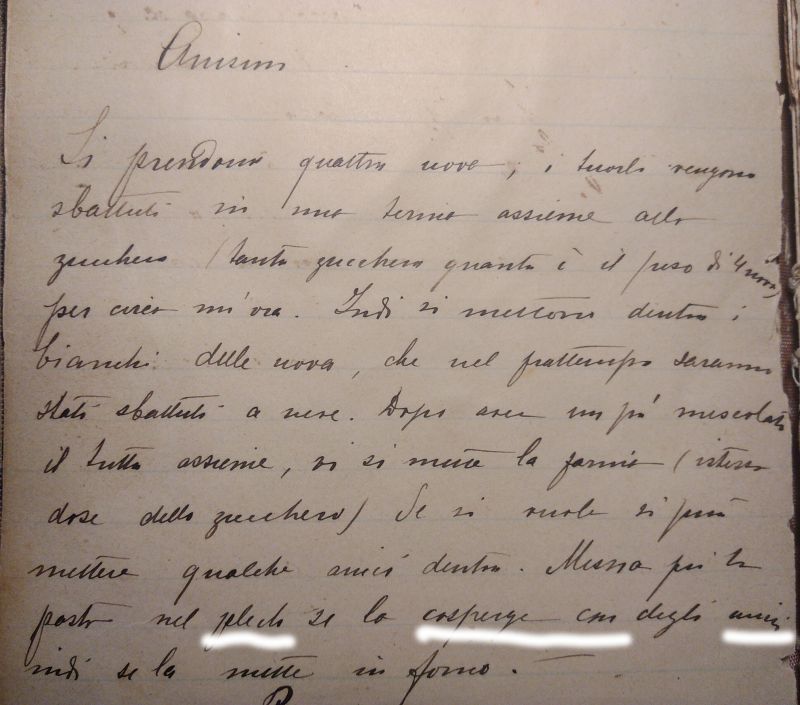 Anisini
Si prendono quattro uova, i tuorli vengono
sbattuti in una terrina assieme allo
zucchero (tanto zucchero quanto è il peso di 4 uova)
per circa un'ora. Indi si mettono dentro i
bianchi delle uova, che nel frattempo saranno
stati sbattuti a neve. Dopo aver un po' mescolato
il tutto assieme, vi si mette la farina (istessa
dose dello zucchero) Se si vuole si può
mettere qualche anici dentro. Messa poi la
pasta nel plech se la cosperge con degli anici
indi se la mette in forno.